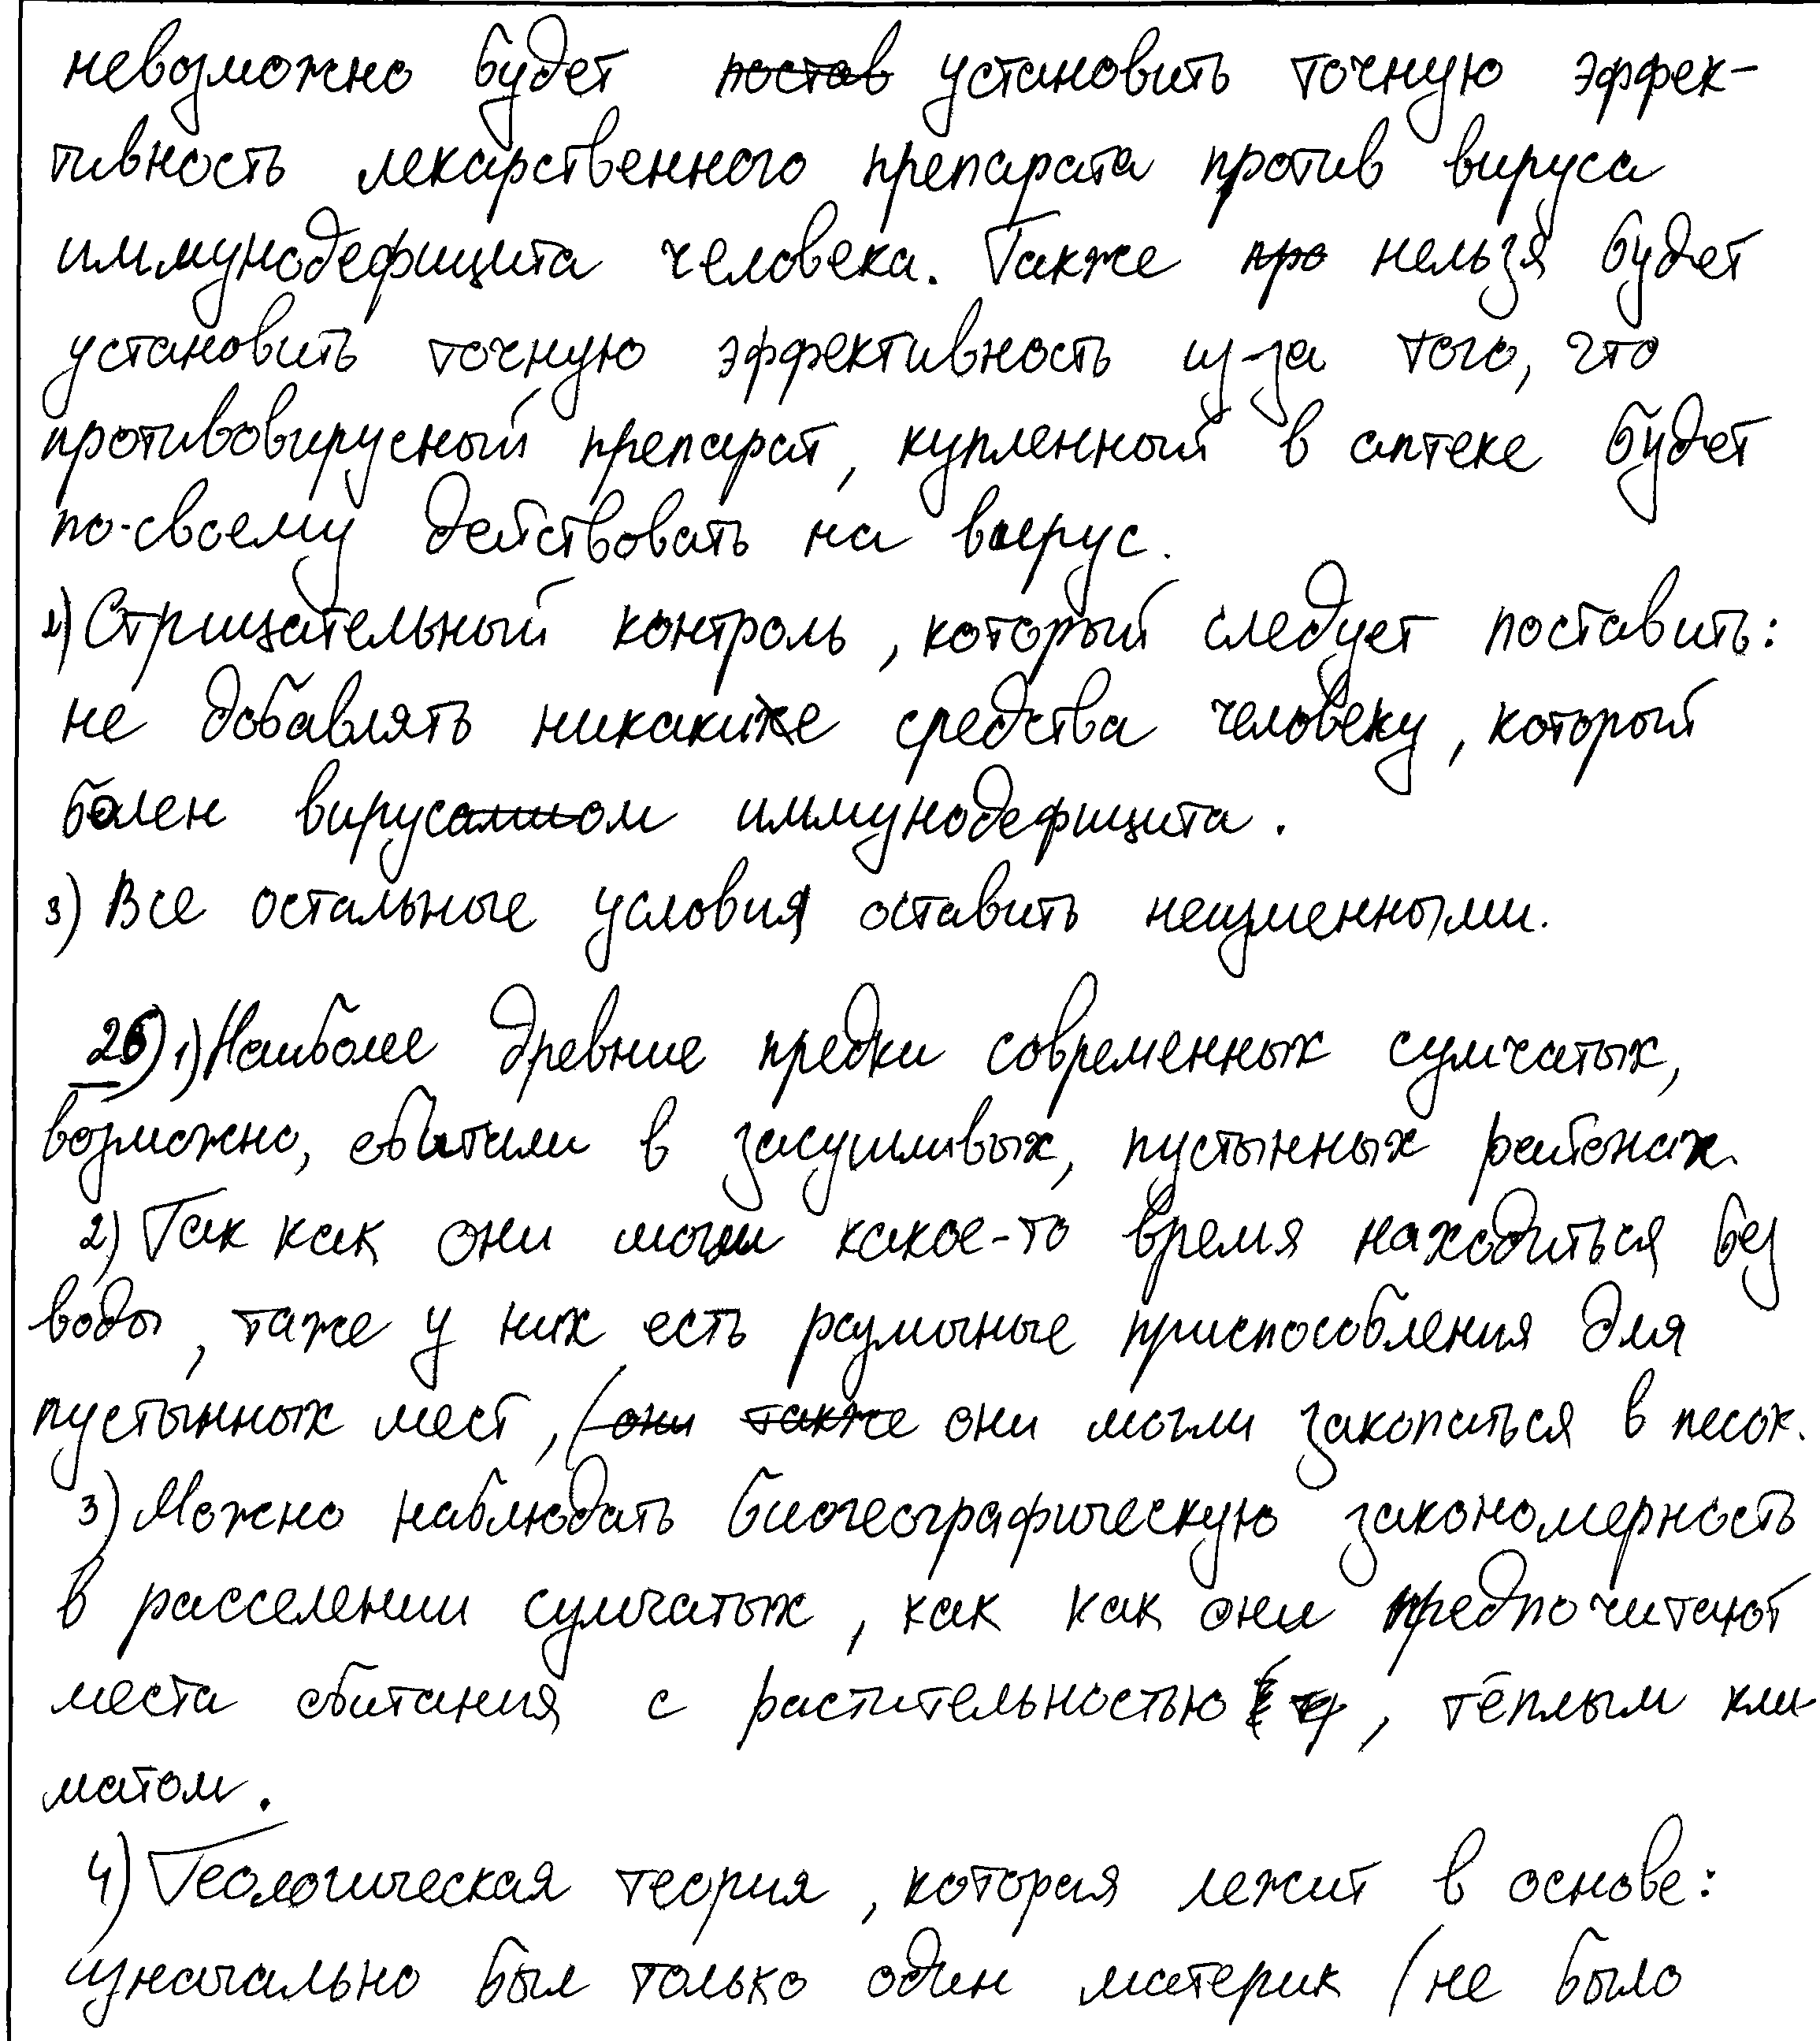 невозможно будет постав установить точную эффек-
тивность лекарственного препарата против вируса
иммунодефицита человека. Также про нельзя будет
установить точную эффективность из-за того, что
противовирусный препарат, купленный в аптеке будет
по-своему действовать на вирус.
2) Отрицательный контроль, который следует поставить:
не добавлять никакие средства человеку, который
болен вирусом иммунодефицита.
3) Все остальные условия оставить неизменными.
26) 1) Наиболее древние предки современных сумчатых,
возможно, обитали в засушливых, пустынных районах.
2) Так как они могли какое-то время находиться без
воды, таже у них есть разумные приспособления для
пустынных мест, (они также они могли закопаться в песок.
3) Можно наблюдать биогеографическую закономерность
в расселении сумчатых, как как они предпочитают
места обитания с растительностью, тёплым кли-
матом.
4) Геологическая теория, которая лежит в основе:
изначально был только один материк (не было